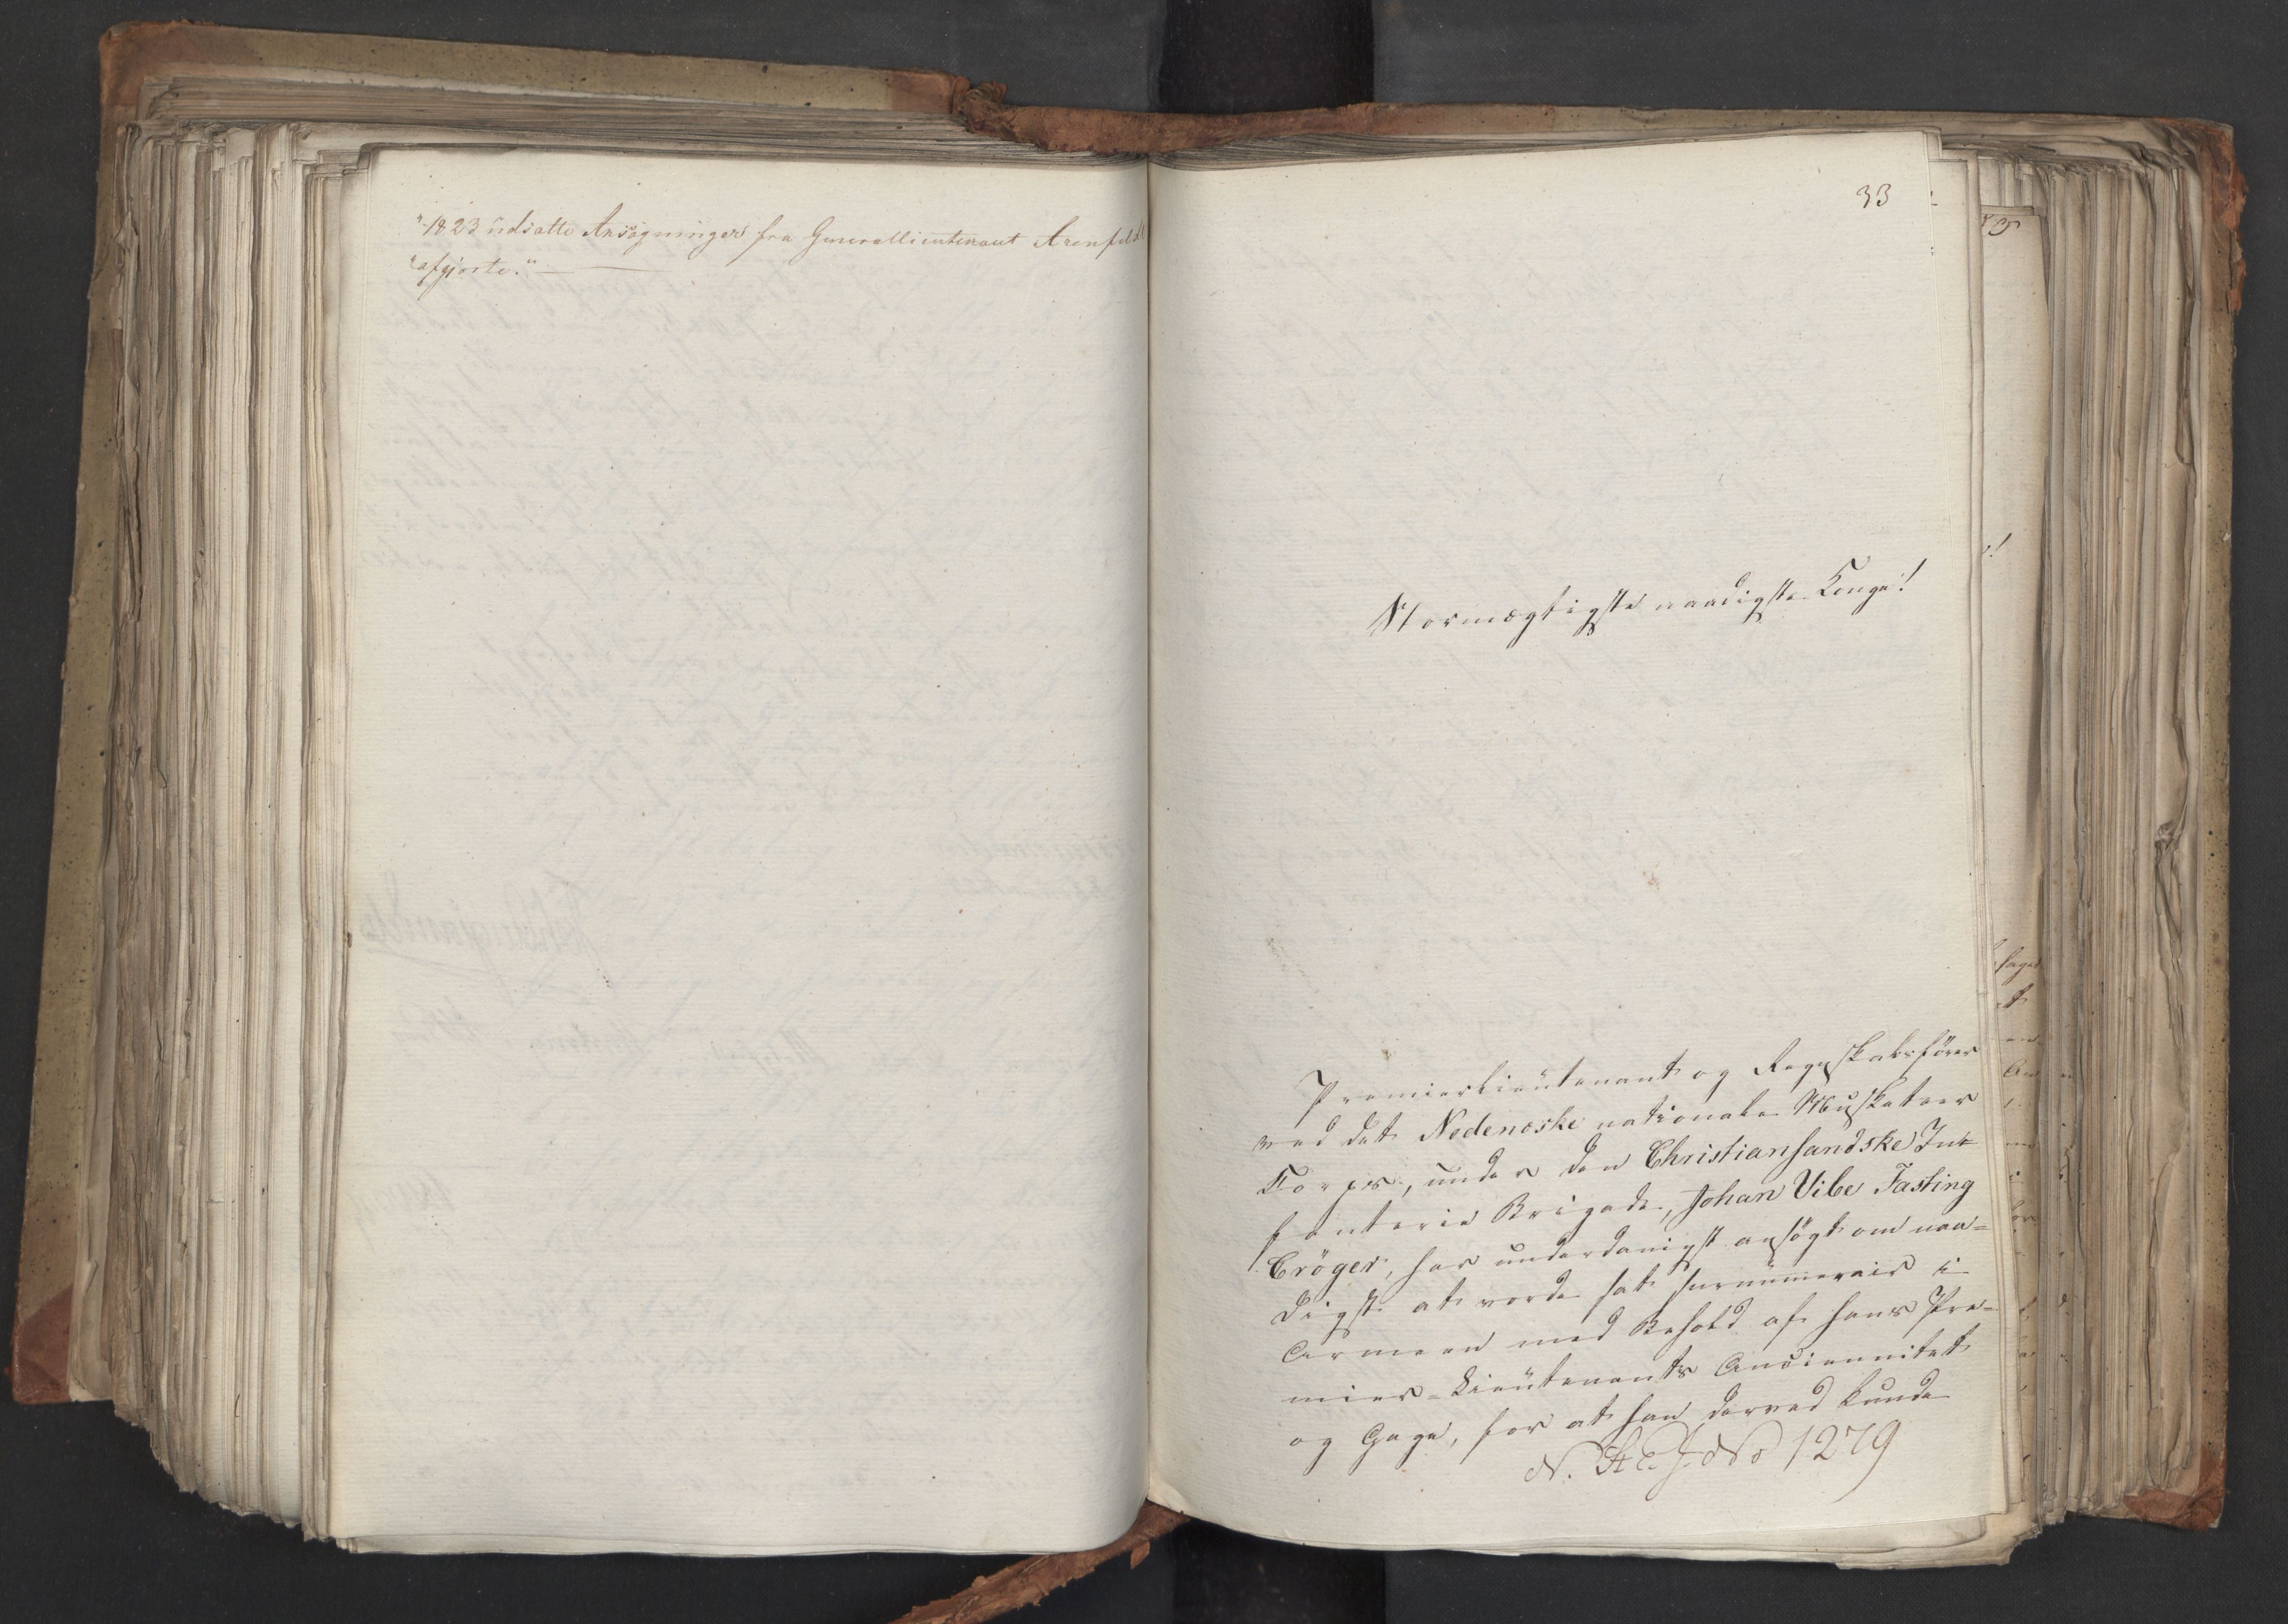 "1823 udsatte Ansøgninger fra Generallieutenant Arenfeldt
"afgjorte."
33
Stormægtigste naadigste Konge!
Premierlieutenant og Regnskabsfører
ved det Nedenæske nationale Musketeer
Corps, under den Christiansandske In-
fanterie Brigade, Johan Vibe Fasting
Crøger, har underdanigst ansøgt om naa=
digst at vorde sat surnumerair i
Armeen med Behold af hans Pre=
mier=Lieutenants Anciennitet
og Gage, for at han derved kunde
N. St. E. J. No 1279